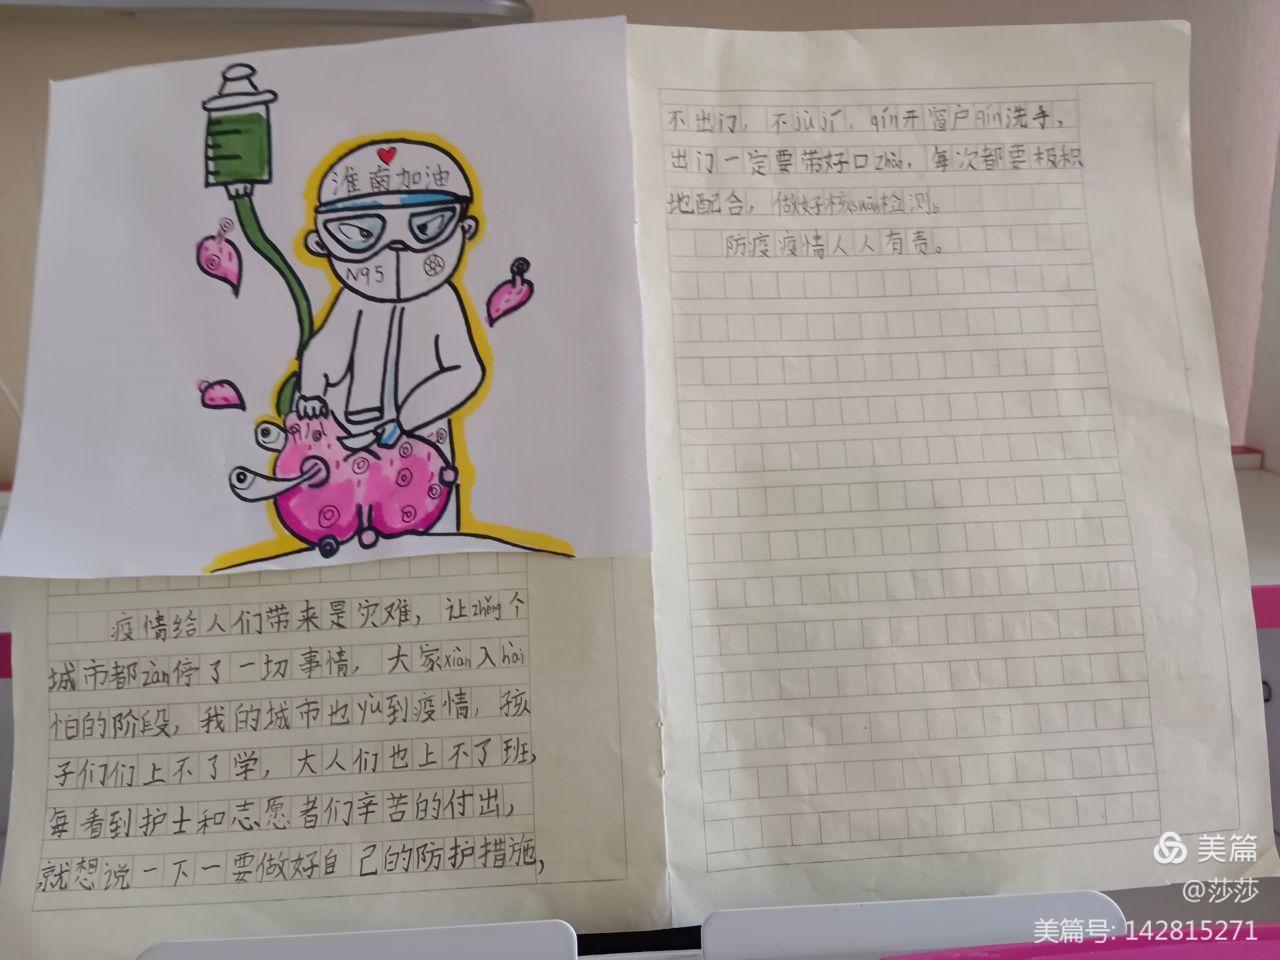 淮南加油
N95
疫情给人们带来是灾难，让zhěng个
城市都zàn停了一切事情，大家xiàn入hài
怕的阶段，我的城市也yù到疫情，孩
子们们上不了学，大人们也上不了班，
每看到护士和志愿者们辛苦的付出，
就想说一下一要做好自己的防护措施，
不出门，不jù jí，qín开窗户qín洗手，
出门一定要带好口zhào，每次都要极积
地配合，做好核suān检测。
防疫疫情人人有责。
美篇
@莎莎
美篇号: 142815271